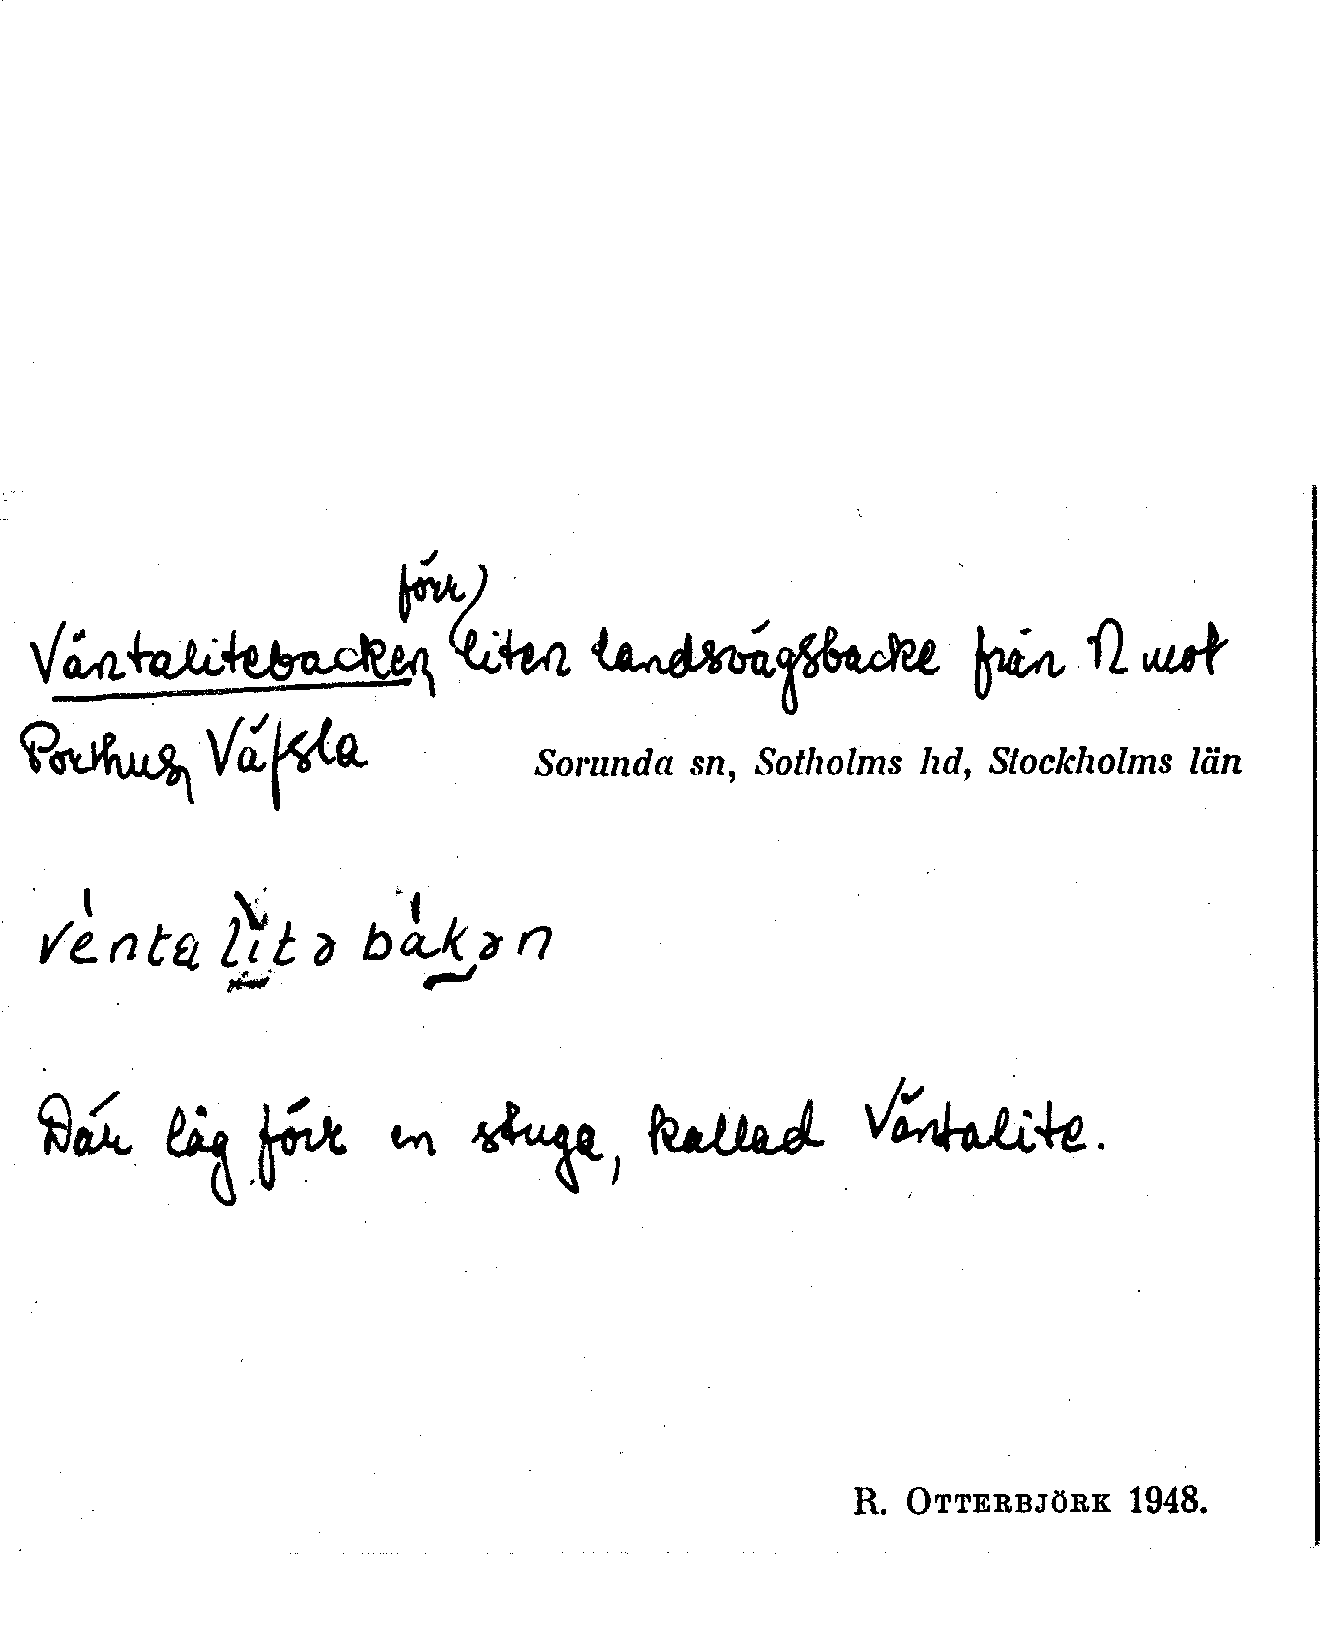 förr
Väntalitebacken, liten landsvägsbacke från N mot
Porthus, Väfsla
Sorunda sn, Sotholms hd, Stockholms län
vèntalìtəbàkən
Där låg förr en stuga, kallad Väntalite.
R. OTTERBJÖRK 1948.